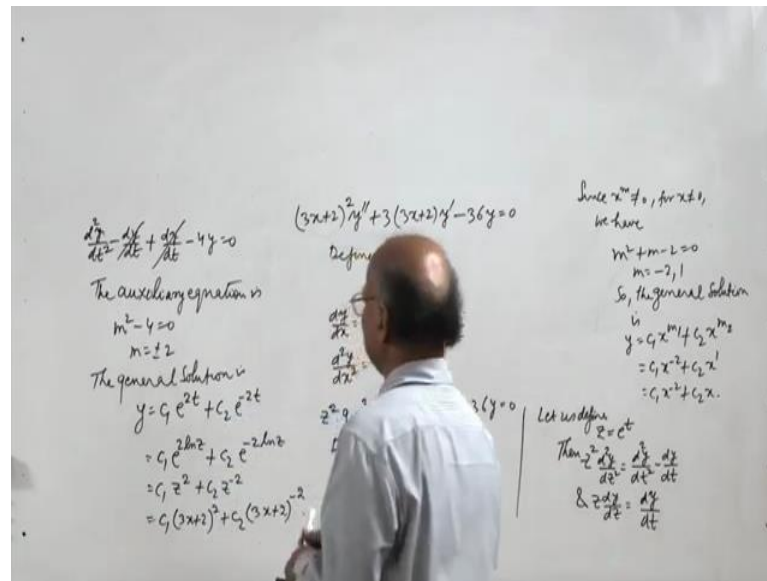 d²y/dt² - dy/dt + dy/dt - 4y = 0
The auxiliary equation is
m² - 4 = 0
m = ±2
The general solution is
y = c₁ e^{2t} + c₂ e^{-2t}
= c₁ e^{2lnz} + c₂ e^{-2lnz}
= c₁ z² + c₂ z^{-2}
= c₁(3x+2)² + c₂(3x+2)^{-2}
(3x+2)² y'' + 3(3x+2)y' - 36y = 0
Define
dy/dx =
d²y/dx² =
z² 9
36y = 0
Since x^m ≠ 0, for x ≠ 0,
we have
m² + m - 2 = 0
m = -2, 1
So, the general solution
is
y = c₁x^{m₁} + c₂x^{m₂}
= c₁x^{-2} + c₂x^1
= c₁x^{-2} + c₂x.
Let us define
z = e^t
Then z² d²y/dz² = d²y/dt² - dy/dt
& z dy/dz = dy/dt